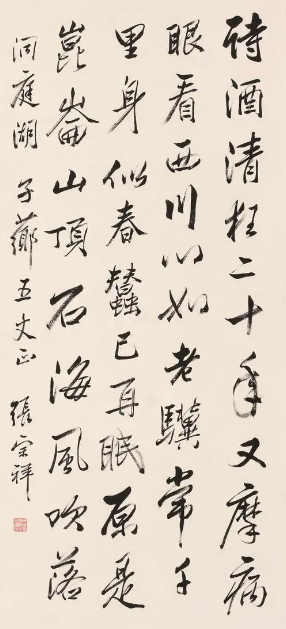 诗酒清狂二十年又摩病
眼看西川心如老骥常千
里身似春蠶已再眠原是
崑崙山頂石海風吹落
洞庭湖 子薌五丈正 張宗祥